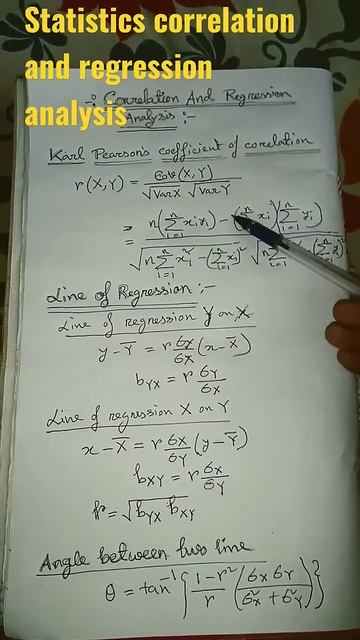 Statistics correlation
and regression
analysis
-: Correlation And Regression
Analysis :-
Karl Pearson's coefficient of corelation
r(X,Y) = Cov(X,Y) / √VarX √VarY
= n(∑ⁿᵢ₌₁ xᵢyᵢ) - (∑ⁿ xᵢ)(∑ⁿᵢ₌₁ yᵢ) / √n∑ⁿᵢ₌₁ xᵢ² - (∑ⁿᵢ₌₁ xᵢ)² √n∑ⁿᵢ₌₁
Line of Regression :-
Line of regression Y on X
y - Y̅ = r σx/σx (x - X̅)
bYX = r σY/σX
Line of regression X on Y
x - X̅ = r σx/σY (y - Y̅)
bXY = r σx/σY
r = √bYX bXY
Angle between two line
θ = tan⁻¹{ 1-r²/r (σx σY / σ²x + σ²Y) }